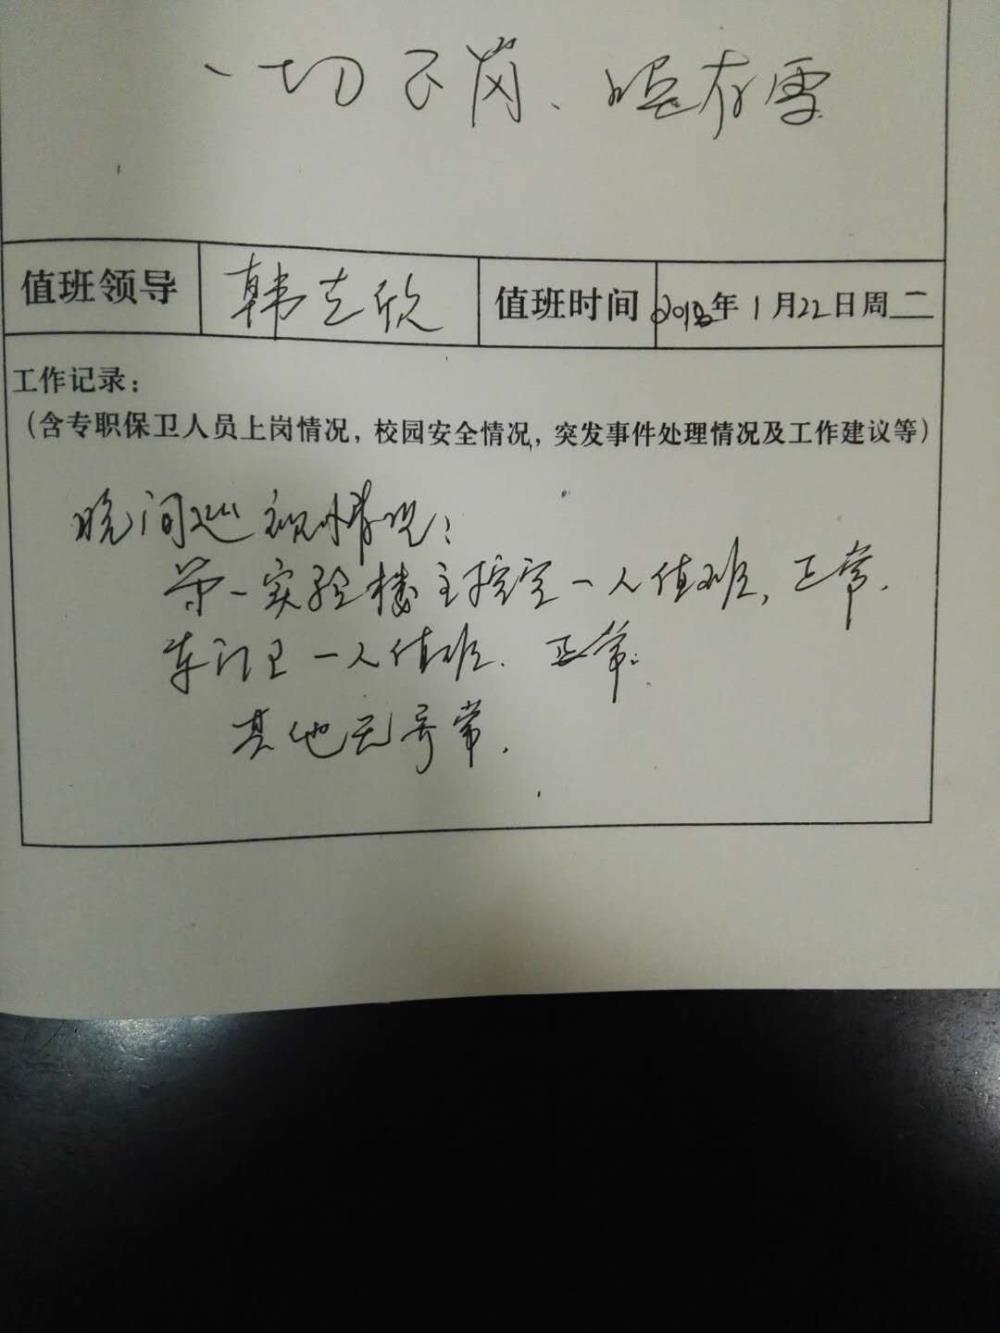 一切正岗、晚有雪
值班领导 韩立欣 值班时间 2018年1月22日周二
工作记录：
（含专职保卫人员上岗情况，校园安全情况，突发事件处理情况及工作建议等）
晚间巡视情况：
第一实验楼主控室一人值班，正常.
东门卫一人值班. 正常.
其他无异常.